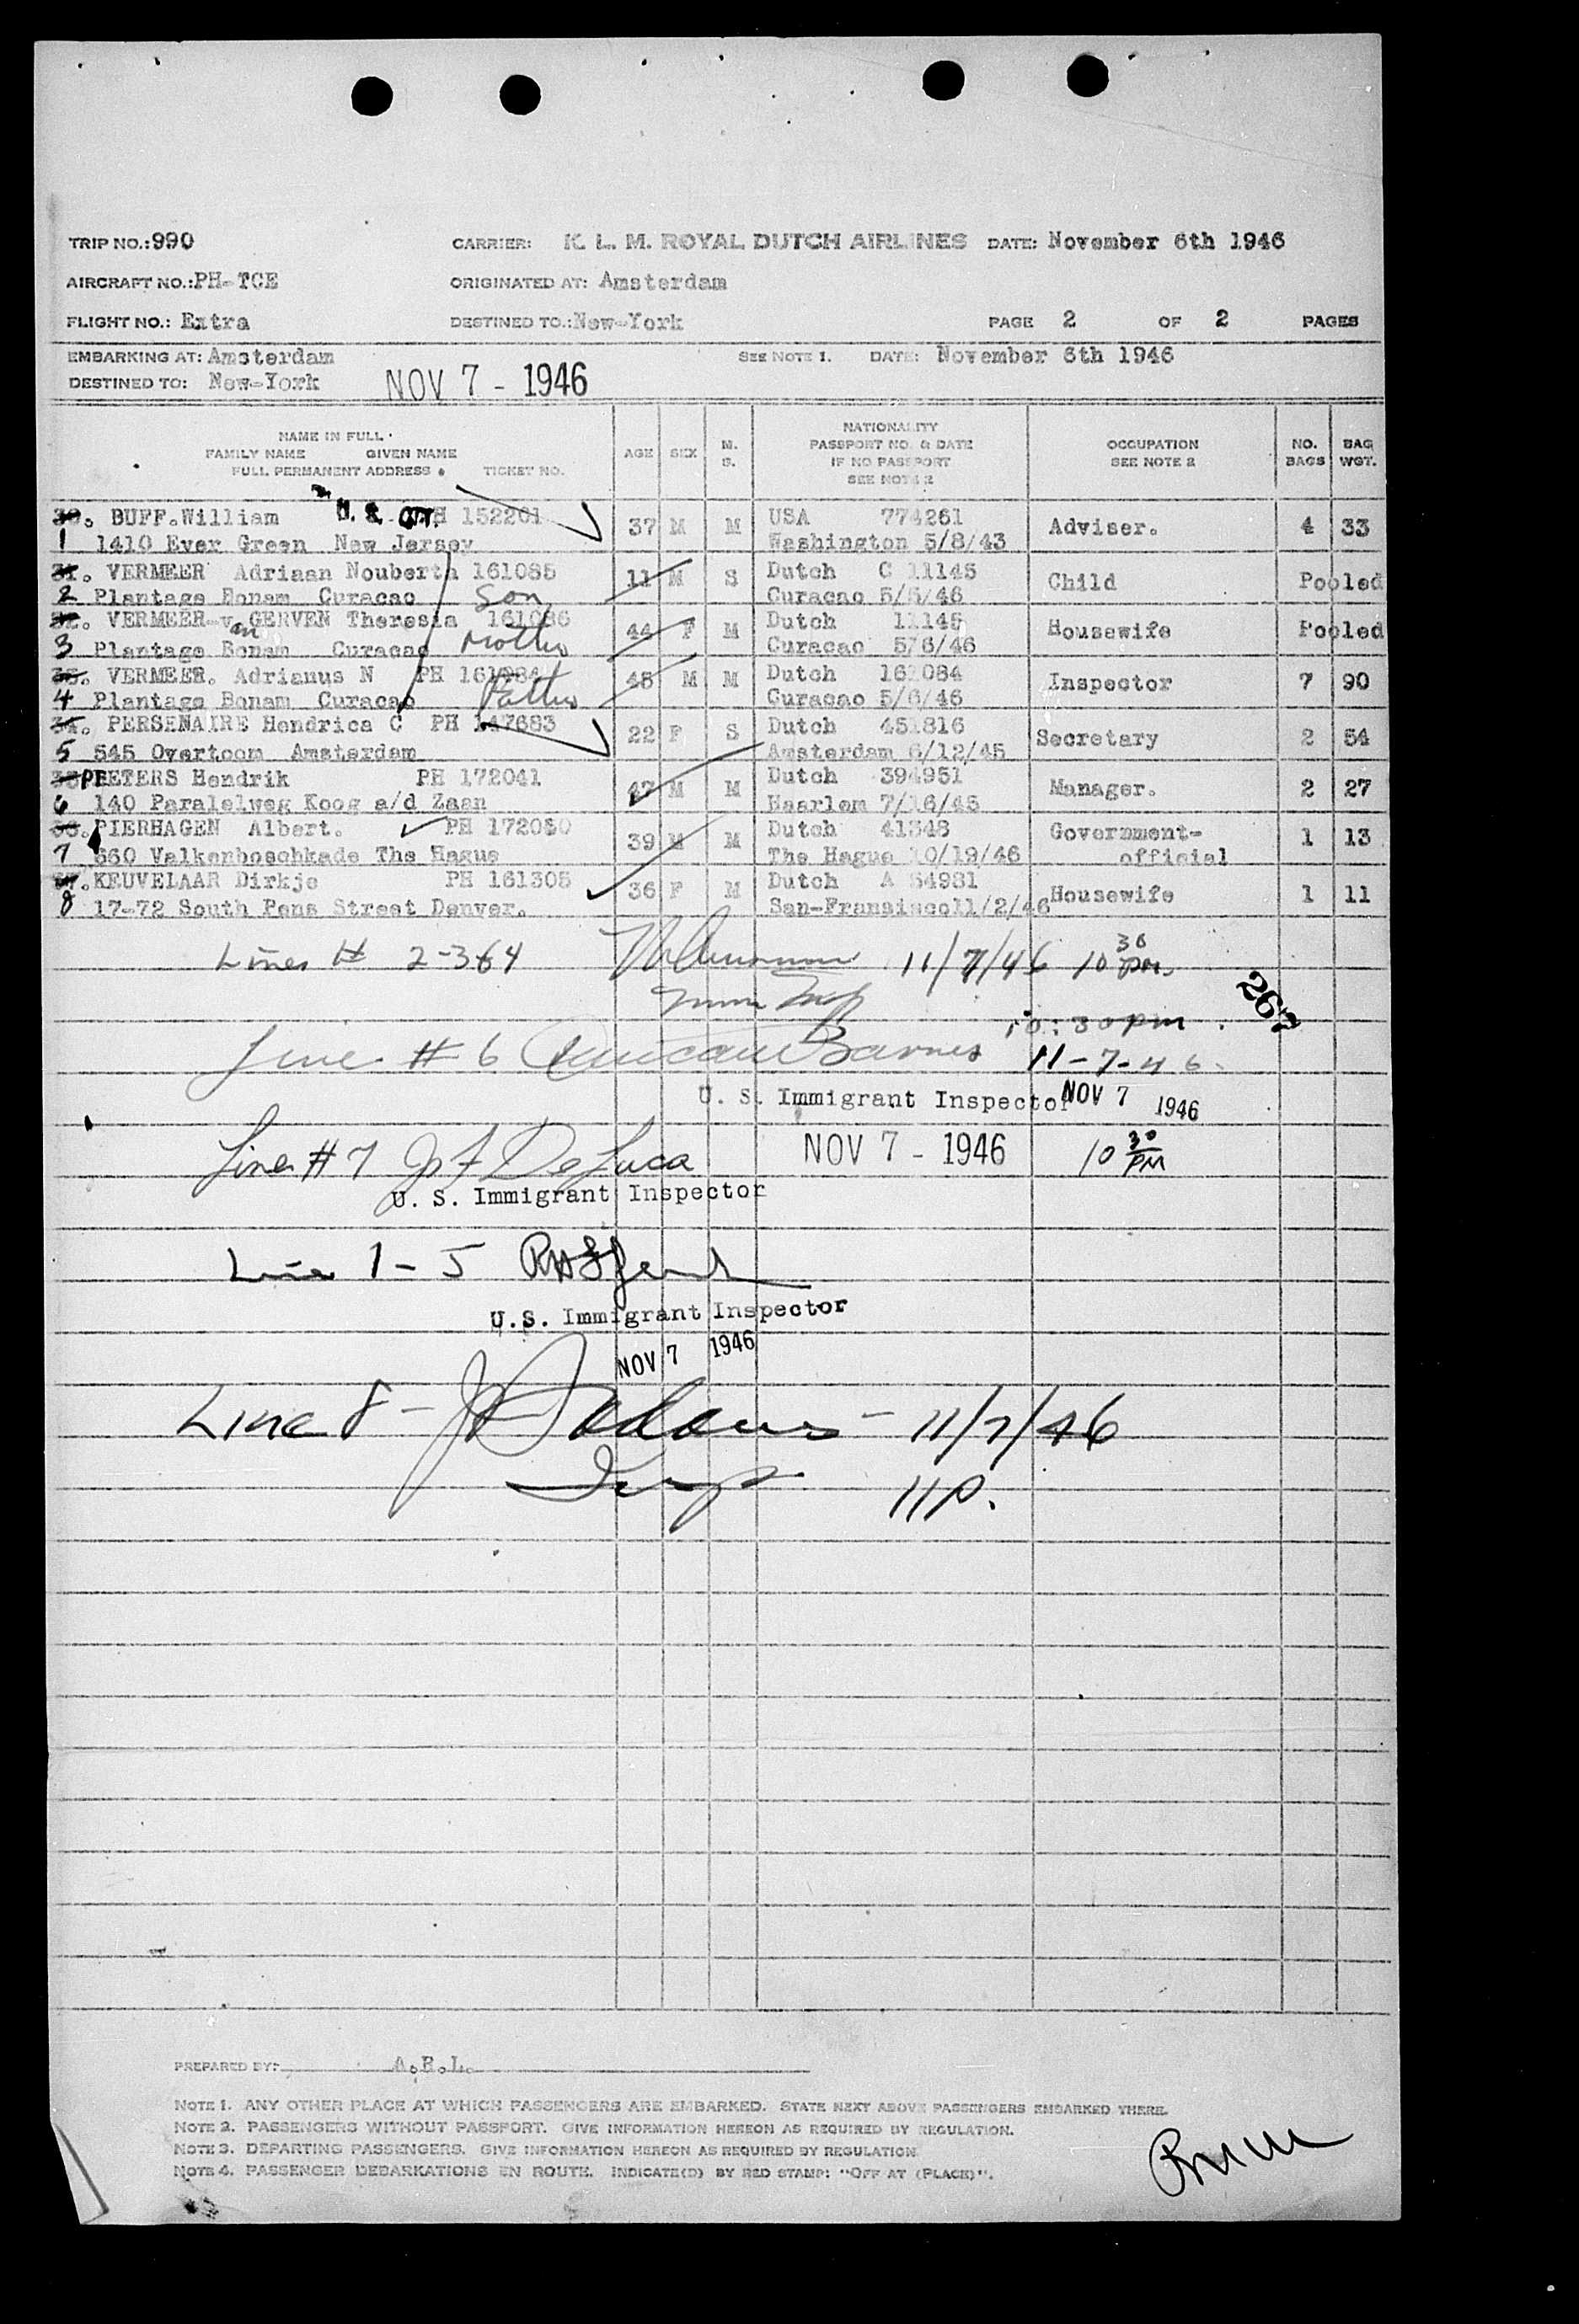 TRIP NO.: 990 CARRIER: K. L. M. ROYAL DUTCH AIRLINES DATE: November 6th 1946
AIRCRAFT NO.: PH-TCE ORIGINATED AT: Amsterdam
FLIGHT NO.: Extra DESTINED TO.: New-York PAGE 2 OF 2 PAGES
EMBARKING AT: Amsterdam SEE NOTE 1. DATE: November 6th 1946
DESTINED TO: New-York NOV 7 - 1946
NAME IN FULL
FAMILY NAME GIVEN NAME
FULL PERMANENT ADDRESS TICKET NO.
AGE SEX M. S.
NATIONALITY
PASSPORT NO. & DATE
IF NO PASSPORT
SEE NOTE 2
OCCUPATION
SEE NOTE 2
NO. BAGS
BAG WGT.
30. BUFF.William U. S. PH 152261 37 M M USA 774261 Adviser. 4 33
1 1410 Ever Green New Jersey Washington 5/8/43
31. VERMEER Adriaan Nouberth 161085 11 M S Dutch C 11145 Child Pooled
2 Plantage Bonam Curacao Son Curacao 5/5/46
32. VERMEER-v. GERVEN Theresia 161086 44 F M Dutch 11145 Housewife Pooled
3 Plantage Bonam Curacao Mother Curacao 5/6/46
33. VERMEER. Adrianus N PH 161084 45 M M Dutch 161084 Inspector 7 90
4 Plantage Bonam Curacao Father Curacao 5/6/46
34. PERSENAIRE Hendrica C PH 147683 22 F S Dutch 451816 Secretary 2 54
5 545 Overtoom Amsterdam Amsterdam 6/12/45
35 PEETERS Hendrik PH 172041 47 M M Dutch 394951 Manager. 2 27
6 140 Paralelweg Koog a/d Zaan Haarlem 7/16/45
36. PIERHAGEN Albert. PH 172080 39 M M Dutch 41348 Government- 1 13
7 660 Valkenboschkade The Hague The Hague 10/19/46 official
37. KEUVELAAR Dirkje PH 161305 36 F M Dutch A 54981 Housewife 1 11
8 17-72 South Pens Street Denver. San-Fransiscoll/2/46
Lines # 2-3&4 11/7/46 10 30 pm.
267
10:30 pm
Line # 6 Barnes 11-7-46.
U. S. Immigrant Inspector NOV 7 1946
Line # 7 De Luca NOV 7 - 1946 10 30 PM
U. S. Immigrant Inspector
Line 1-5
U.S. Immigrant Inspector
NOV 7 1946
Line 8 - Adams - 11/7/46
Insp 11 P.
PREPARED BY: A.R.L.
NOTE 1. ANY OTHER PLACE AT WHICH PASSENGERS ARE EMBARKED. STATE NEXT ABOVE PASSENGERS EMBARKED THERE.
NOTE 2. PASSENGERS WITHOUT PASSPORT. GIVE INFORMATION HEREON AS REQUIRED BY REGULATION.
NOTE 3. DEPARTING PASSENGERS. GIVE INFORMATION HEREON AS REQUIRED BY REGULATION
NOTE 4. PASSENGER DEBARKATIONS EN ROUTE. INDICATE(D) BY RED STAMP: "OFF AT (PLACE)".